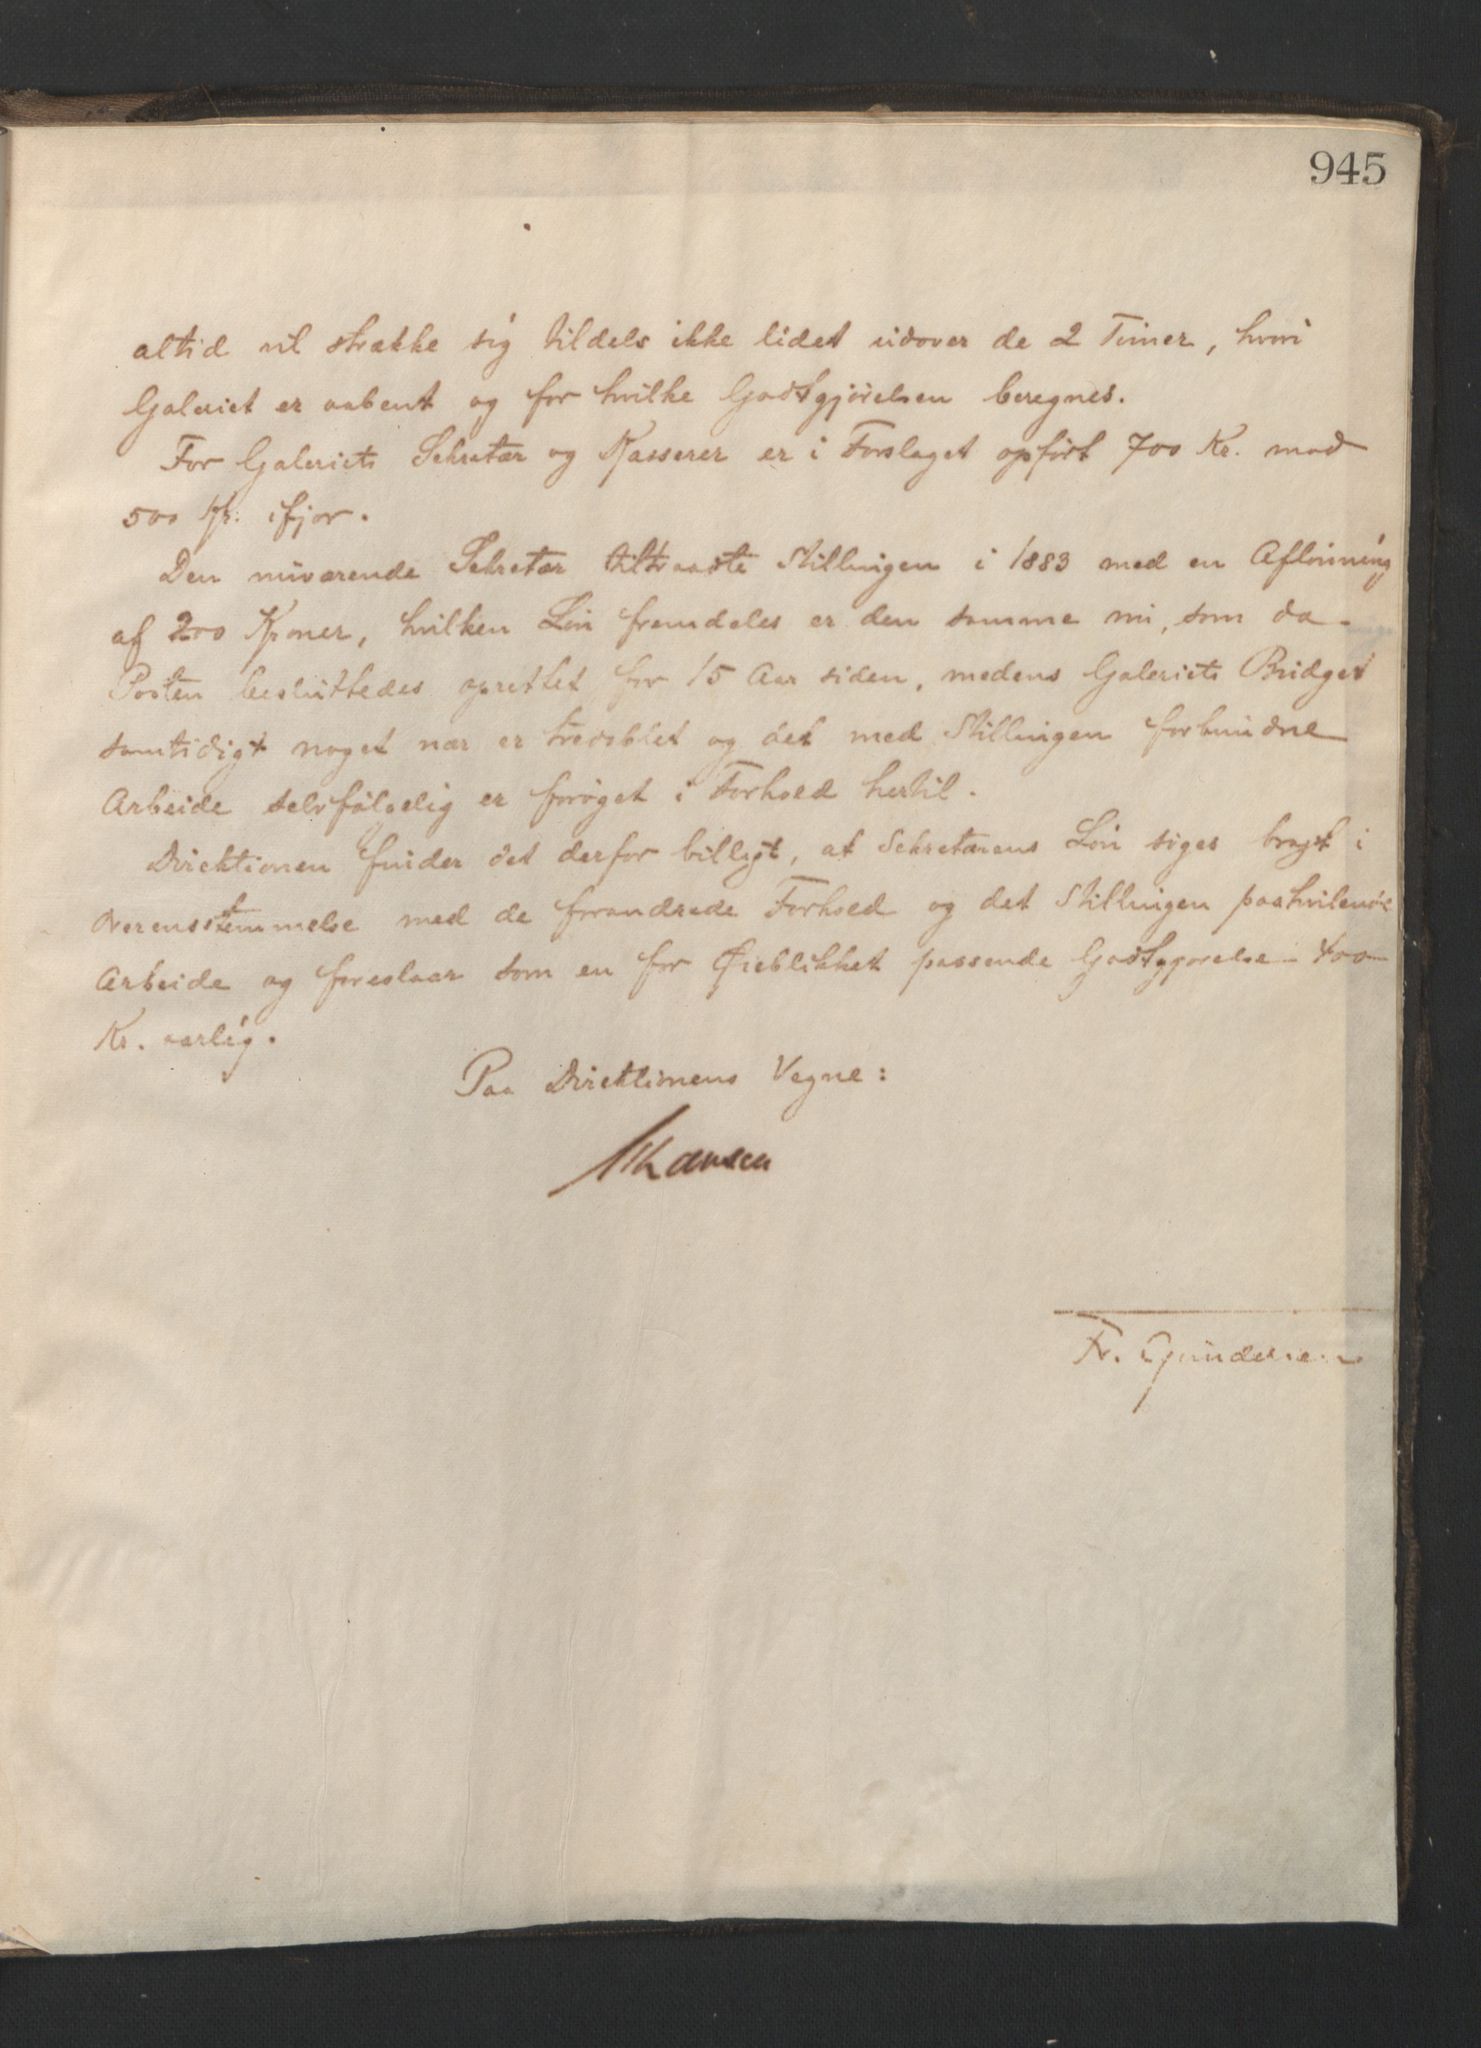 945
altid vil strække sig tildels ikke lidet udover de 2 Timer, hvori
Galeriet er aabent og for hvilke Godtgjörelsen beregnes.
For Galeriets Sekretær og Kasserer er i Forslaget opfört 700 Kr. mod
500 Kr. ifjor.
Den nuværende Sekretær tiltraadte Stillingen i 1883 med en Aflönning
af 200 Kroner, hvilken Lön fremdeles er den samme nu, som da
Posten besluttedes oprettet for 15 Aar siden, medens Galeriets Budget
samtidigt noget nær er tredoblet og det med Stillingen forbundne
Arbeide selvfölgelig er foröget i Forhold hertil.
Direktionen finder det derfor billigt, at Sekretærens Lön siges bragt i
Overensstemmelse med de forandrede Forhold og det Stillingen paahvilende
Arbeide og foreslaar som en for Øieblikket passende Godtgjörelse 400
Kr. aarlig.
Paa Direktionens Vegne:
Fr. Gundersen